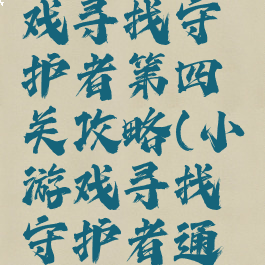 戏寻找守
护者第四
关攻略(小
游戏寻找
守护者通